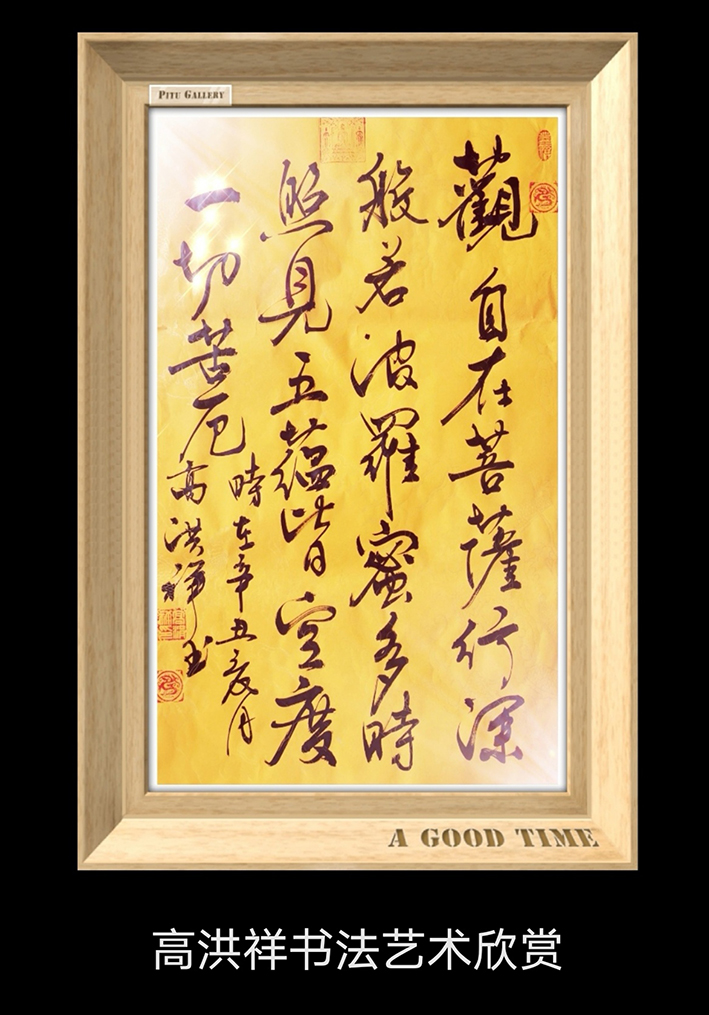 PITU GALLERY
觀自在菩薩行深
般若波羅蜜多時
照見五蘊皆空度
一切苦厄
時在辛丑夏月
高洪祥书
A GOOD TIME
高洪祥书法艺术欣赏